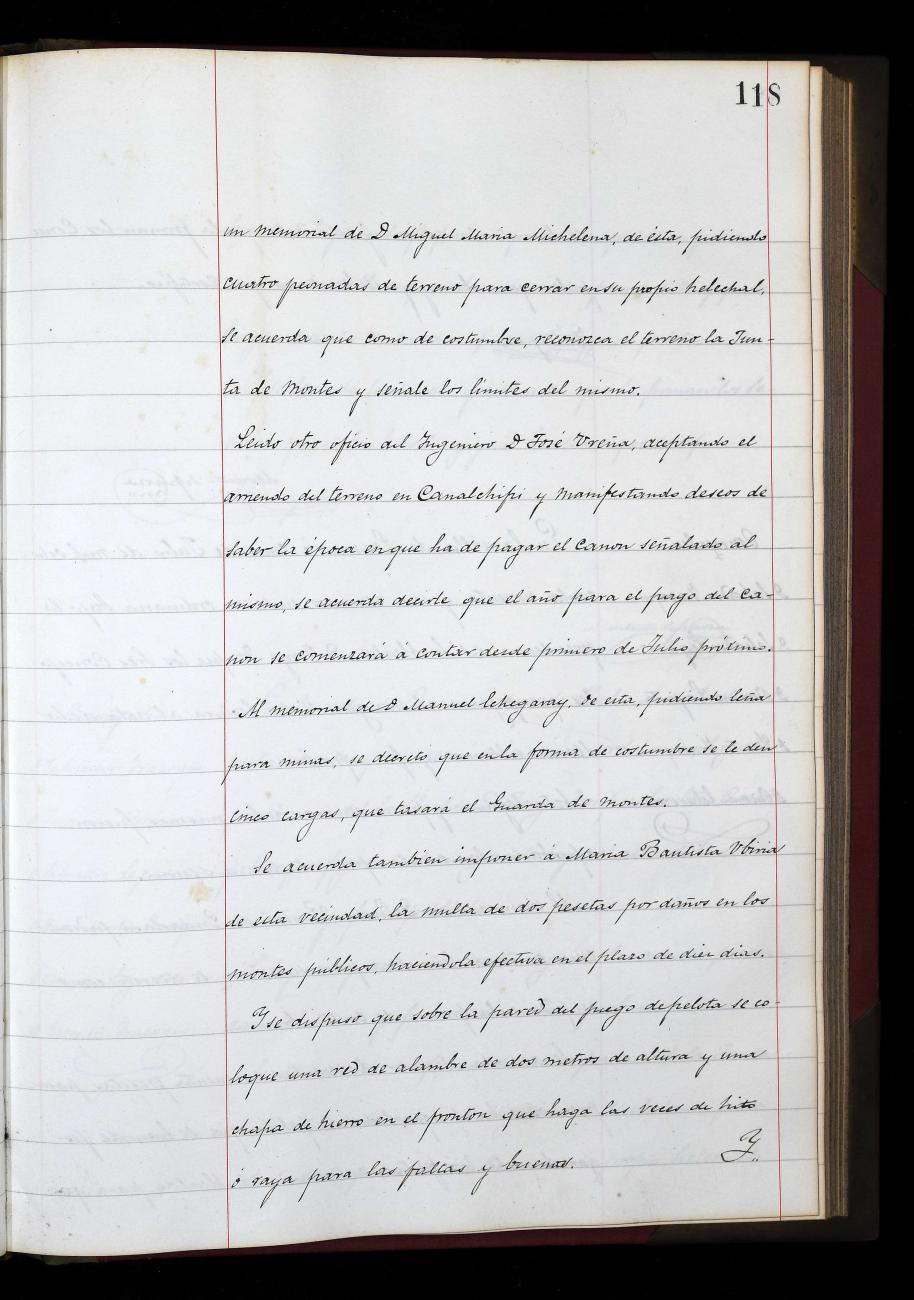 118
un memorial de D Miguel Maria Michelena, de ésta, pidiendo
cuatro peonadas de terreno para cerrar en su propio helechal,
se acuerda que como de costumbre, reconozca el terreno la Jun-
ta de Montes y señale los límites del mismo.
Leido otro oficio del Ingeniero D José Ureña, aceptando el
arriendo del terreno en Canalchipi y manifestando deseos de
saber la época en que ha de pagar el canon señalado al
mismo, se acuerda decirle que el año para el pago del ca-
non se comenzará á contar desde primero de Julio próximo.
Al memorial de D Manuel Echegaray, de esta, pidiendo leña
para minas, se decretó que en la forma de costumbre se le den
cinco cargas, que tasará el Guarda de montes.
Se acuerda tambien imponer á Maria Bautista Ubiria
de esta vecindad, la multa de dos pesetas por daños en los
montes públicos, haciendola efectiva en el plazo de diez dias.
Y se dispuso que sobre la pared del juego de pelota se co-
loque una red de alambre de dos metros de altura y una
chapa de hierro en el fronton que haga las veces de hito
ó raya para las faltas y buenas.
Y.,